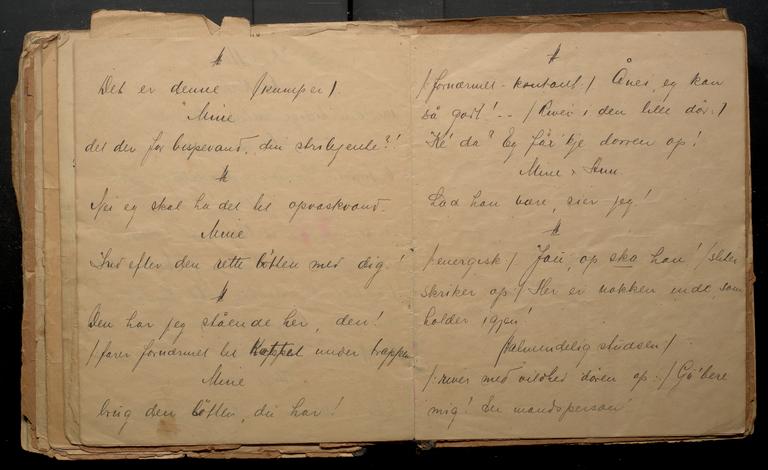 Det er denne /kumpe/.
Mine
det der for bespevand, din strilejente?!
Nei eg skal ha det til opvaskvand.
Mine
Ind efter den rette bötten med dig!
Den har jeg stående her, den!
/:farer fornærmet til under trappen
Mine
brug den bötten, du har!
/:fornærmet - kontant:/ Ånei, eg kan
så godt! -- /River i den lille dör:/
"Ké da"? Eg får 'kje dørren op!
Mine &
Lad han være, sier jeg!
/:energisk:/ Jau, op ska han! /sliter
skriker op:/ Her er nokken inde som
holder igjen!
Almindelig studsen:/
/:river med vildhed dören op:/ Gu'bere
mig! En mandsperson!